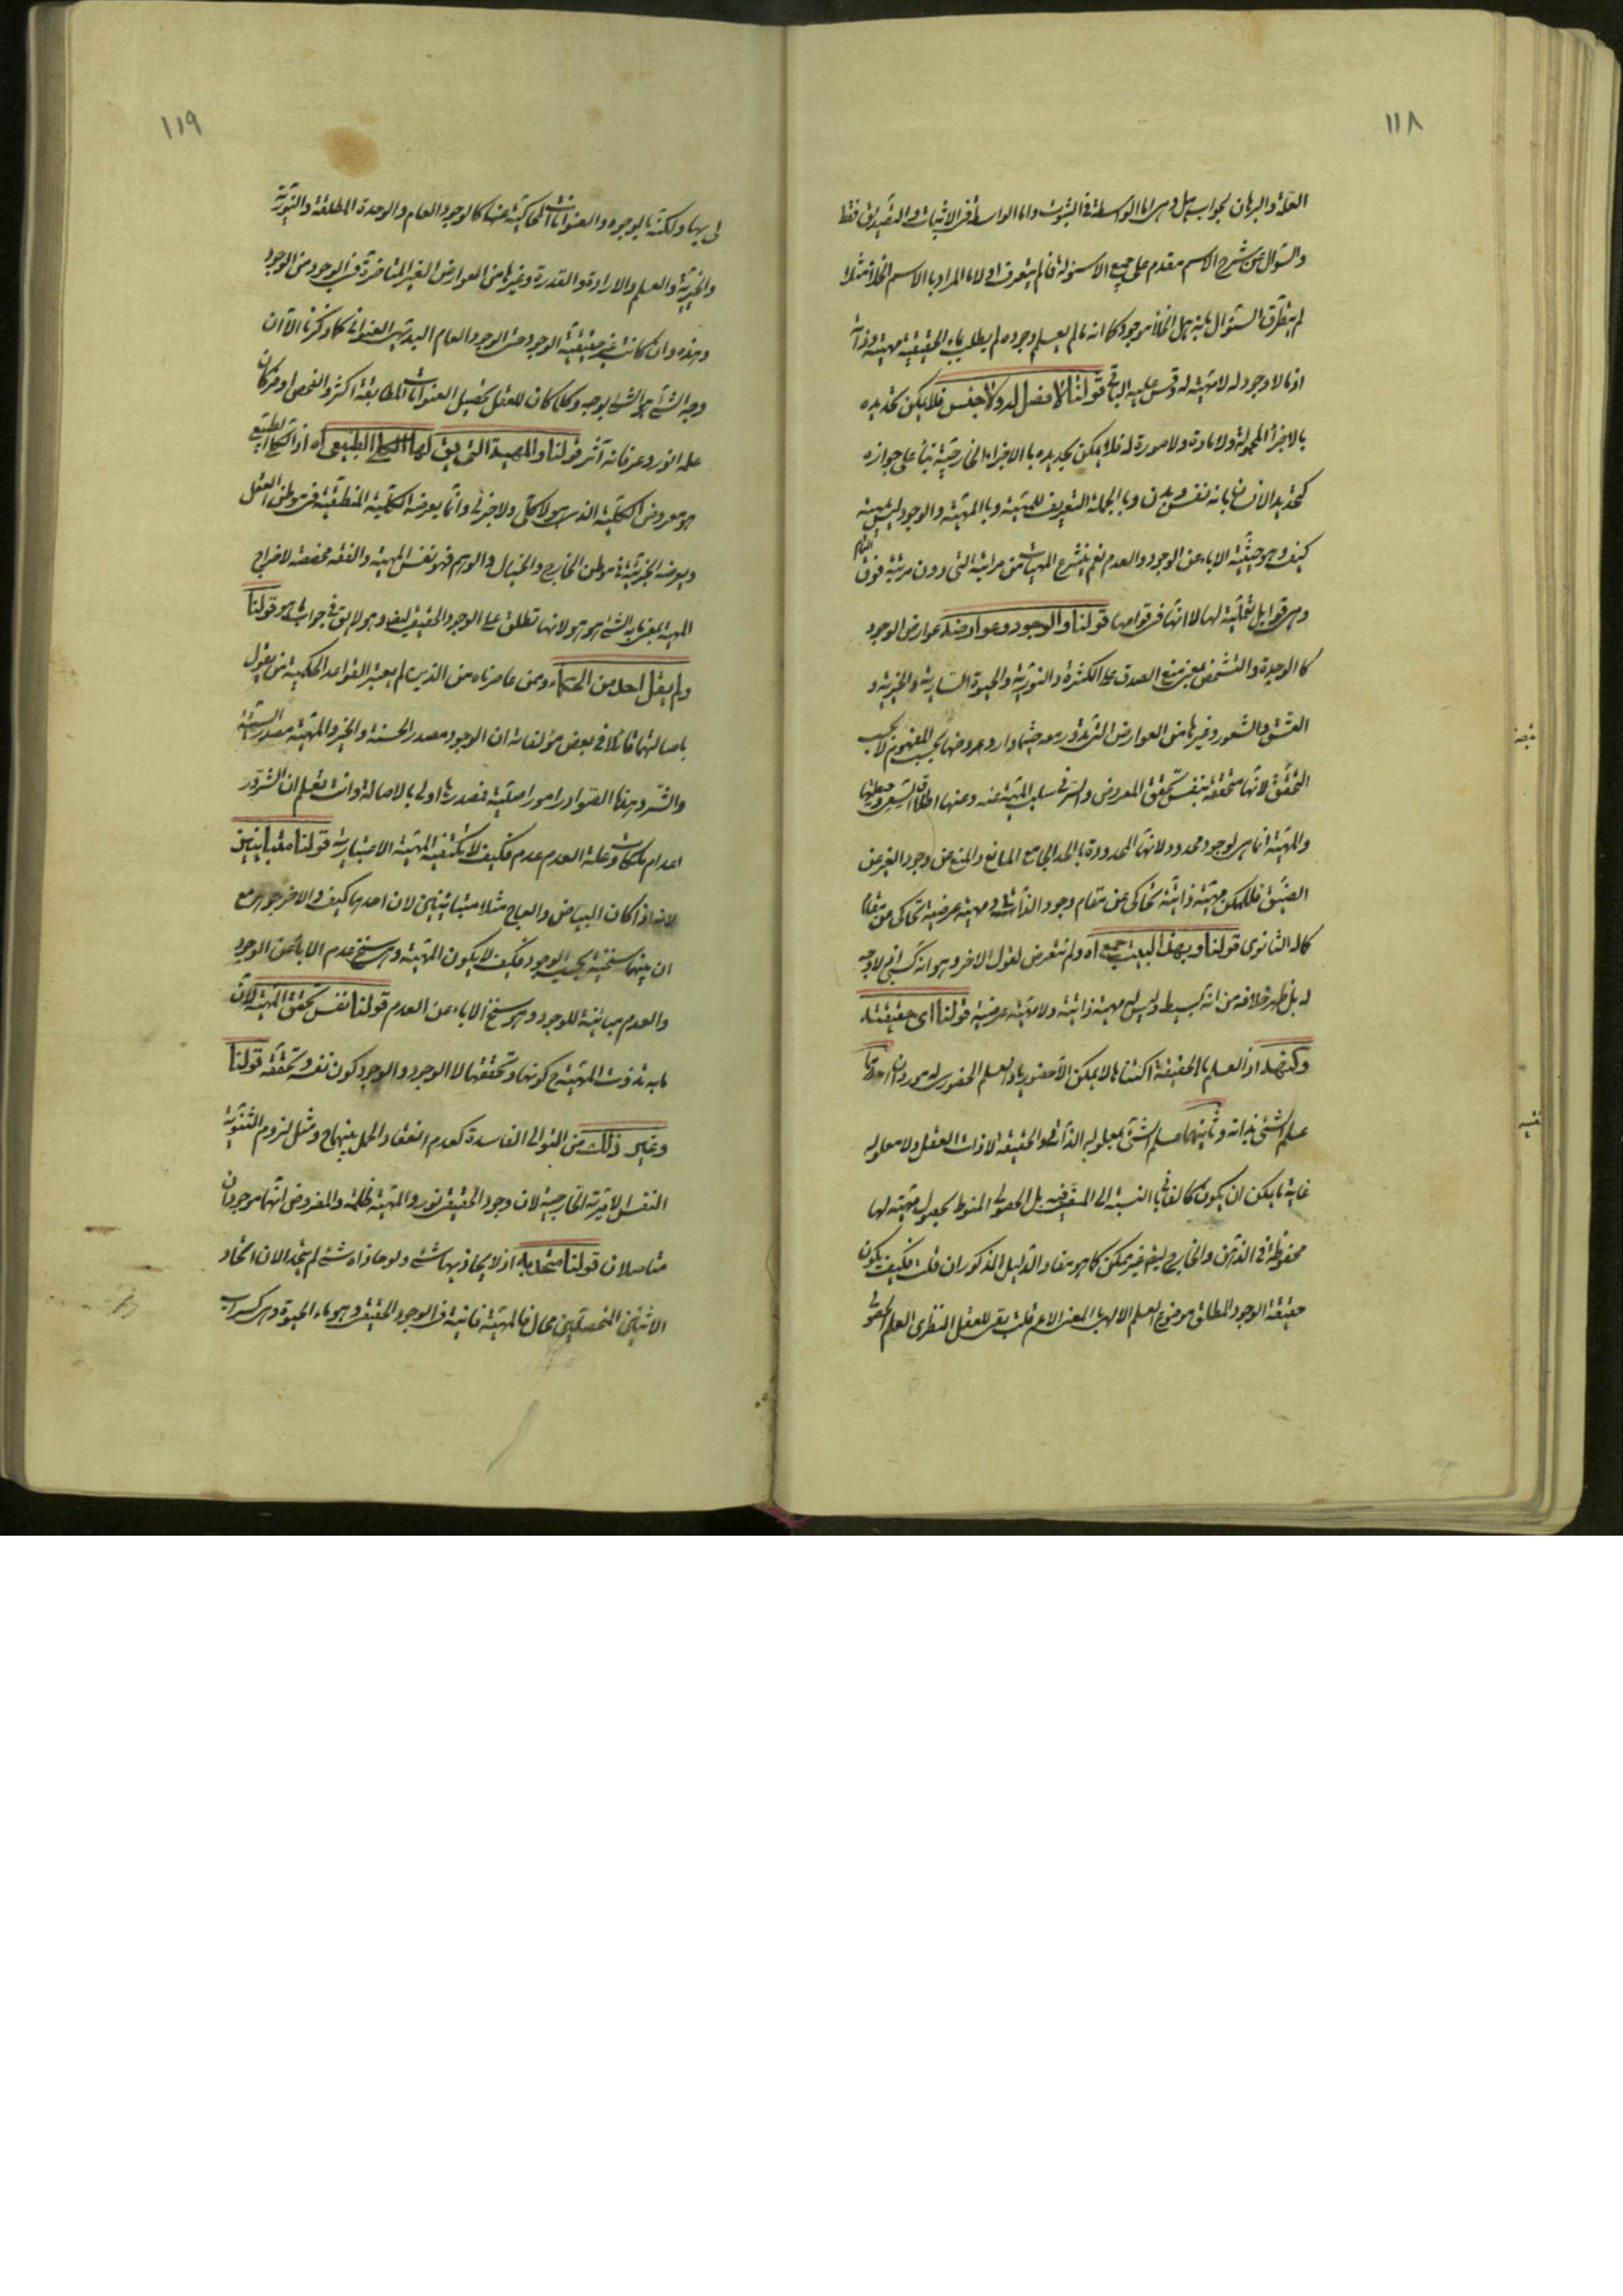 ١١٨
العلة والبرهان لجواب هل وهى اما الواسطة فى الثبوت واما الواسطة فى الاثبات والتصديق فقط
والسؤال عن شرح الاسم مقدم على جميع الاسئولة فما لم يتعرف اولا ما المراد بالاسم الخلاء مثلا
لم يتطرق السؤال بانه هل الخلاء موجود كما انه ما لم يعلم وجوده لم يطلب بماء الحقيقية مهيته وذاته
اذ ما لا وجود له لا مهية له وقس عليه الباقى قولنا لا فصل له ولا جنس فلا يمكن تحديده
بالاجزاء المحمولة ولا مادة ولا صورة له فلا يمكن تحديده بالاجزاء الخارجية بناء على جوازه
كتحديد الانسان بانه نفس وبدن وبالجملة التعريف للمهية وبالمهية والوجود ليس مهية
كيف وهو حيثية الاباء عن الوجود والعدم نعم ينتزع المهيات من مراتبه التى دون مرتبة فوق التمام
وهى قوابل تعملية لها لا انها فى قوامها قولنا والوجود وعوارضه عوارض الوجود
كالوحدة والتشخص بمعنى منع الصدق على الكثرة والنورية والحيوة السارية والخيرية و
العشق والشعور وغيرها من العوارض التى تدور معه حيثما دار وعروضها بحسب المفهوم لا بحسب
التحقق لانها متحققة بنفس تحقق المعروض والسر فى سلب المهية عنه وعنها اطلاق السعى وحيطتها
والمهية انما هى لوجود محدود لانها المحدودة بالحد الجامع المانع والمنع عن وجود الغير عن
الضيق فللممكن مهية ذاتية تحاكى عن مقام وجود الذاتى ومهية عرضية تحاكى عن مقام
كماله الثانوى قولنا وبهذا البيت جمع اه ولم نتعرض لقول الاخر وهو انه كسبى لا وجه
له بل ظهر خلافه من انه بسيط وليس له مهية ذاتية ولا مهية عرضية قولنا اى حقيقته
وكنهه اذ العلم بالحقيقة اكتناها لا يمكن الا حضوريا والعلم الحضورى له موردان احدهما
علم الشئ بذاته وثانيهما علم الشئ بمعلوله الذاتى والحقيقة لا ذات العقل ولا معلوله
غاية ما يمكن ان يكون كالفانى بالنسبة الى المفنى فيه بل الحصولى المنوط بحصول مهية لها
محفوظة فى الذهن والخارج ايضا غير ممكن كما هو مفاد الدليل المذكور ان قلت فكيف يكون
حقيقة الوجود المطلق موضوع العلم الالهى بالمعنى الاعم قلت بقى للعقل النظرى العلم الحضورى
١١٩
لى بها ولكنه بالوجوه والعنوانات الحاكية عنها كالوجود العام والوحدة المطلقة والنورية
والخيرية والعلم والارادة والقدرة وغيرها من العوارض الغير المتاخرة فى الوجود من الوجود
وهذه وان كانت غير حقيقية الوجود حتى الوجود العام البديهى العنوانى كما ذكرنا الا ان
وجه الشئ هو الشئ بوجه وكلما كان للعقل تحصيل العنوانات المطابقة اكثر والفحص اوفر كان
علمه انور وعرفانه آثر قولنا والمهية التى يق لها الكلى الطبيعى اه اذ الكلى الطبيعى
هو معروض الكلية الذى هو لا كلى ولا جزئى وانما يعرضه الكلية المنطقية فى موطن العقل
ويعرضه الجزئية فى موطن الخارج والخيال والوهم فهو نفس المهية والفقه مخصصة لاخراج
المهية بمعنى ما به الشئ هو هو لانها تطلق على الوجود الحقيقى ايضا وهو لا يق فى جواب ما هو قولنا
ولم يقل احد من الحكماء ومن عاصرناه من الذين لم يعتبر القواعد الحكمية من يقول
باصالتهما قائلا فى بعض مؤلفاته ان الوجود مصدر الحسنة والخير والمهية مصدر السيئة
والشر وهذه الصوادر امور اصلية فمصدرها اولى بالاصالة وانت تعلم ان الشرور
اعدام ملكات وعلة العدم عدم فكيف لا يكتفيه المهية الاعتبارية قولنا متباينين
لانه اذا كان البياض والعاج مثلا متباينين لان احدهما كيف والاخر جوهر مع
ان بينهما سنخية بحسب الوجود فكيف لا يكون المهية وهى سنخ عدم الاباء عن الوجود
والعدم مباينة للوجود وهو سنخ الاباء عن العدم قولنا نفس تحقق المهية لان
ما به تذوت المهية ح كونها وتحققها لا الوجود والوجود كون نفسه وتحققه قولنا
وغير ذلك من التوالى الفاسدة كعدم انعقاد الحمل بينهما ح ومثل لزوم الثنوية
النفس الامرية الخارجية لان وجود الحقيقى نور والمهية ظلمة والمفروض انهما موجودان
متاصلان قولنا متحد به اذ لا يحاذيها شئ ولو حاذاه شئ لم يتحد الان اتحاد
الاثنين المتحصلين محال فالمهية فانية فى الوجود الحقيقى وهو ماء الحيوة وهى كسراب